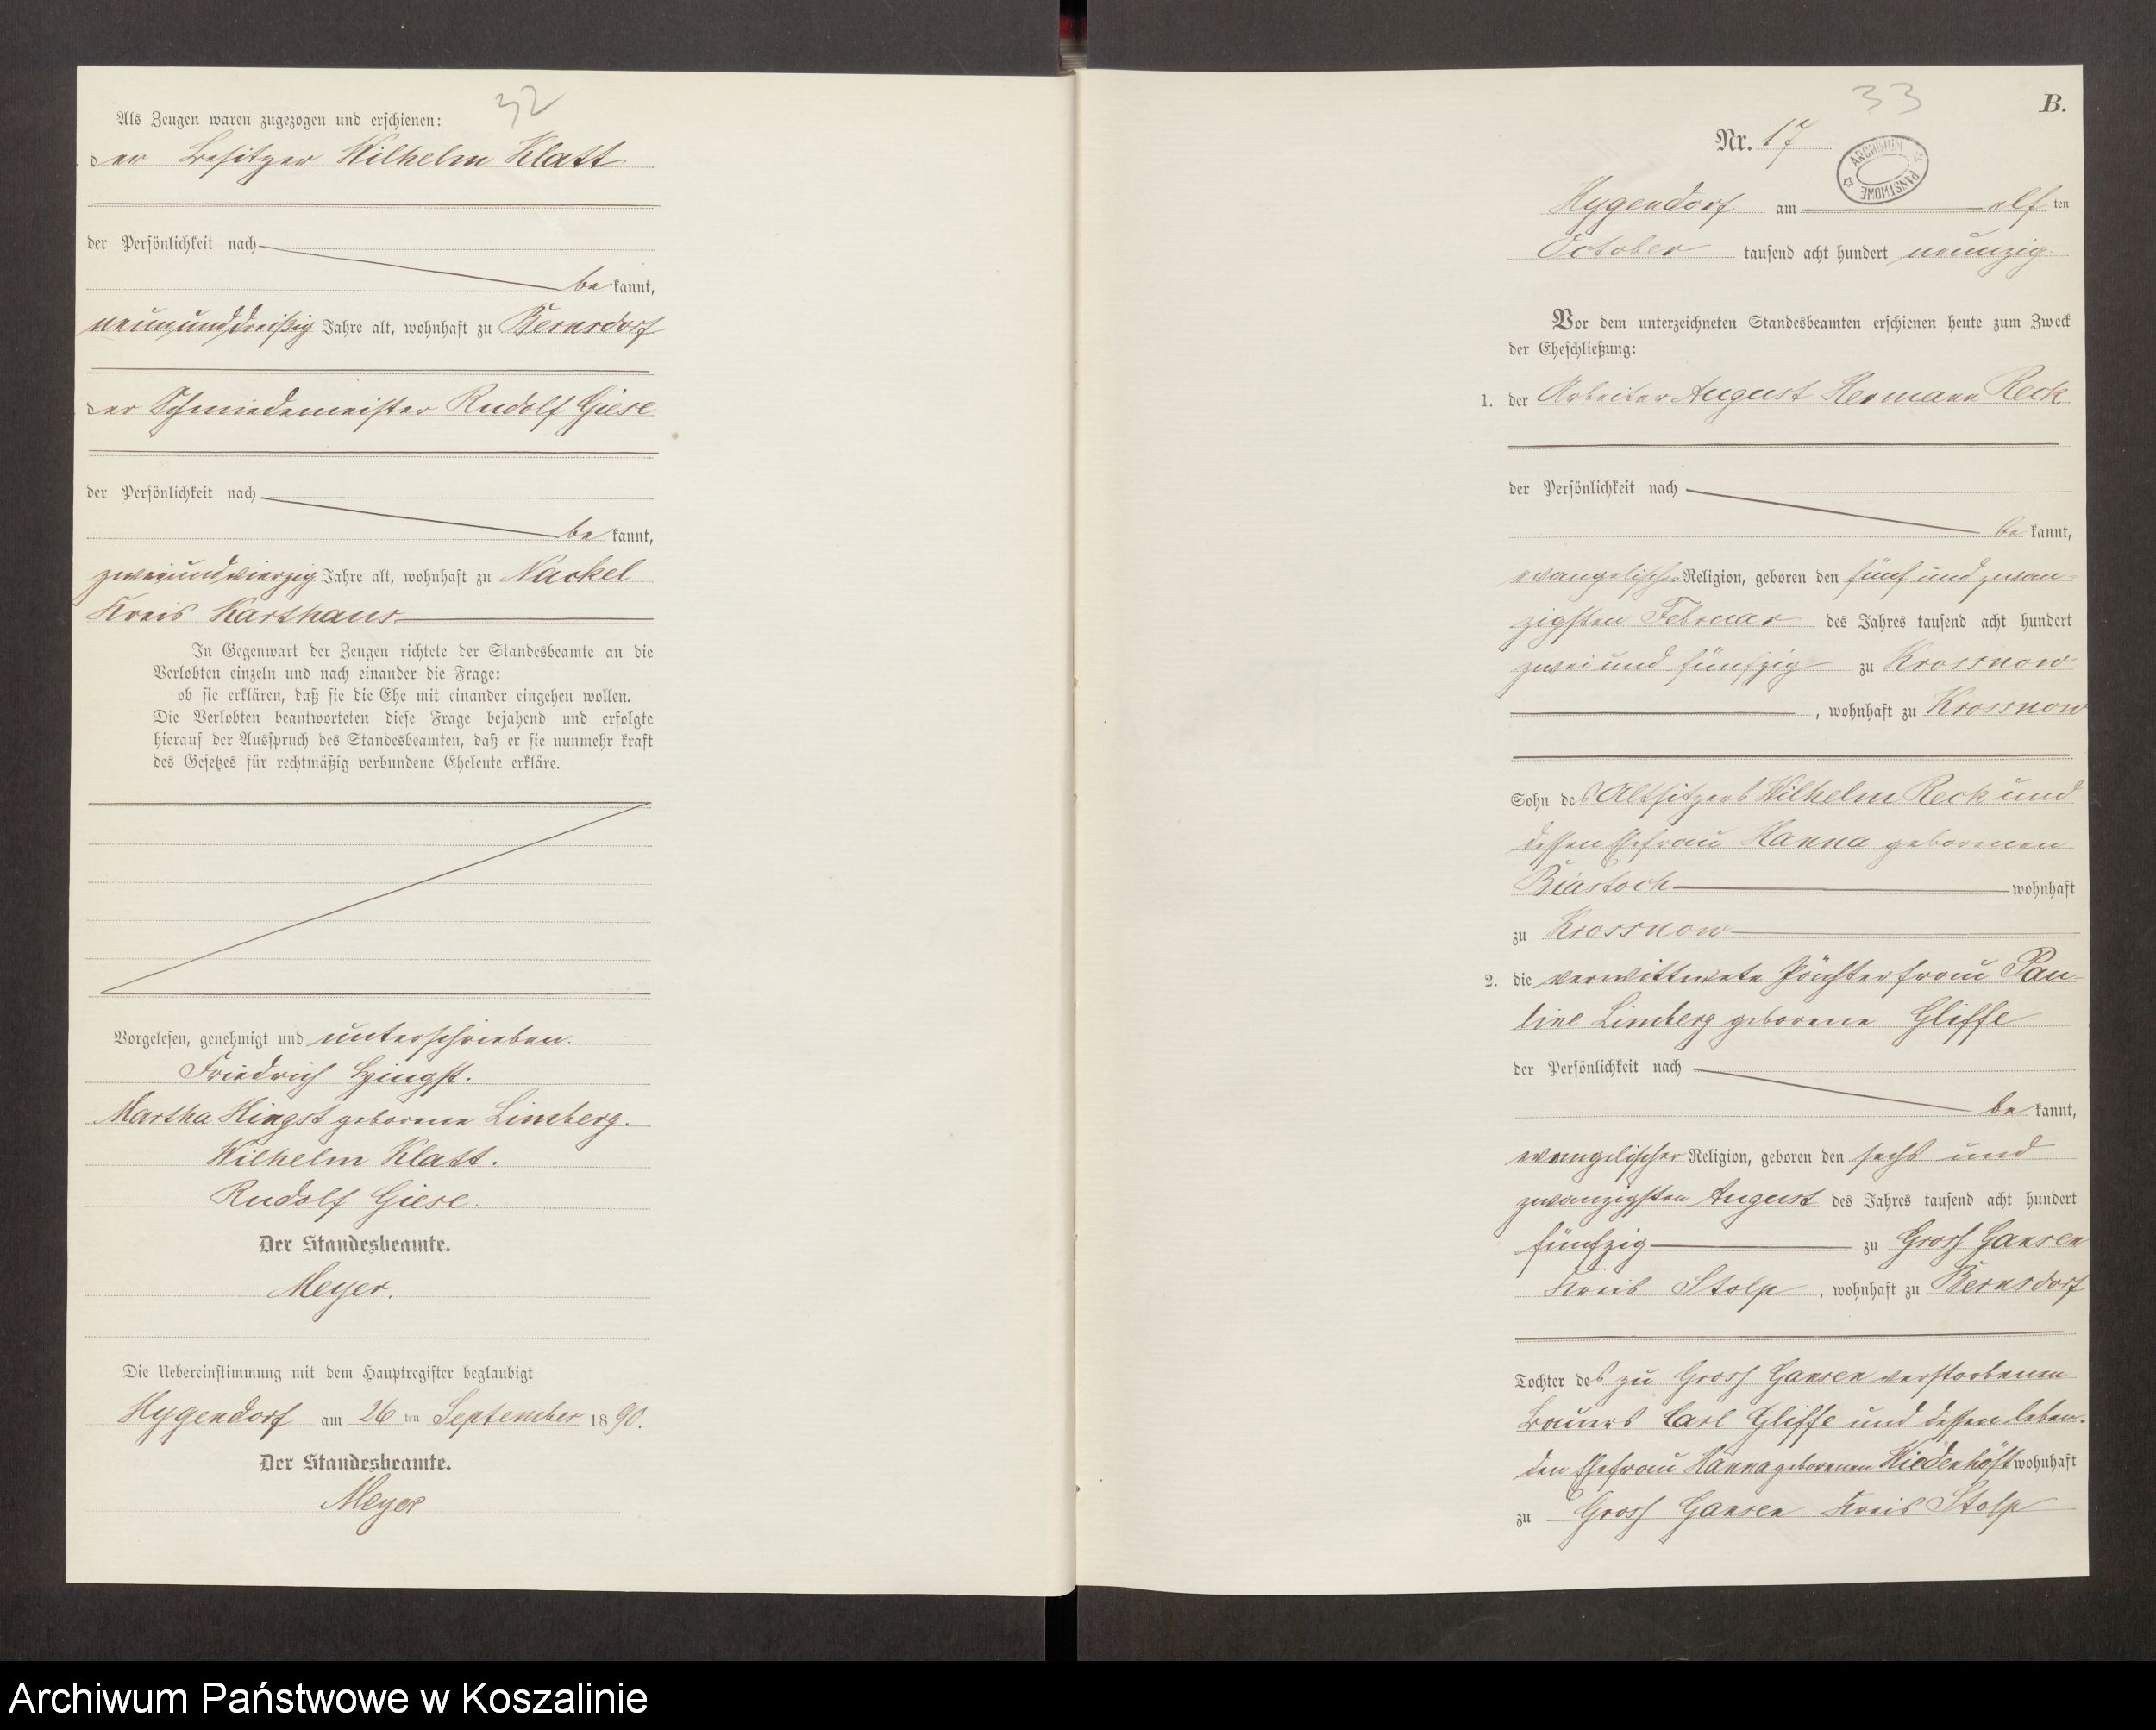 32
Als Zeugen waren zugezogen und erschienen:
der Besitzer Wilhelm Klatt
der Persönlichkeit nach
bekannt,
neununddreißig Jahre alt, wohnhaft zu Bernsdorf
der Schmiedemeister Rudolf Giese
der Persönlichkeit nach
bekannt,
zweiundvierzig Jahre alt, wohnhaft zu Nackel
Kreis Karthaus
In Gegenwart der Zeugen richtete der Standesbeamte an die
Verlobten einzeln und nach einander die Frage:
ob sie erklären, daß sie die Ehe mit einander eingehen wollen.
Die Verlobten beantworteten diese Frage bejahend und erfolgte
hierauf der Ausspruch des Standesbeamten, daß er sie nunmehr kraft
des Gesetzes für rechtmäßig verbundene Eheleute erkläre.
Vorgelesen, genehmigt und unterschrieben.
Friedrich Hingst.
Martha Hingst geborene Limberg.
Wilhelm Klatt.
Rudolf Giese.
Der Standesbeamte.
Meyer.
Die Uebereinstimmung mit dem Hauptregister beglaubigt
Hygendorf am 26 ten September 1890.
Der Standesbeamte.
Meyer
33
B.
Nr. 17
ARCHIWUM PAŃSTWOWE
Hygendorf am elf ten
October tausend acht hundert neunzig
Vor dem unterzeichneten Standesbeamten erschienen heute zum Zweck
der Eheschließung:
1. der Arbeiter August Hermann Reck
der Persönlichkeit nach
bekannt,
evangelischer Religion, geboren den fünf und zwan-
zigsten Februar des Jahres tausend acht hundert
zwei und fünfzig zu Krossnow
, wohnhaft zu Krossnow
Sohn des Altsitzers Wilhelm Reck und
dessen Ehefrau Hanna geborenen
Biastoch wohnhaft
zu Krossnow
2. die verwittwete Pächterfrau Pau-
line Limberg geborene Gliffe
der Persönlichkeit nach
bekannt,
evangelischer Religion, geboren den sechs und
zwanzigsten August des Jahres tausend acht hundert
fünfzig zu Gross Gansen
Kreis Stolp, wohnhaft zu Bernsdorf
Tochter des zu Gross Gansen verstorbenen
Bauers Carl Gliffe und dessen leben-
den Ehefrau Hanna geborenen Wiedenhöft wohnhaft
zu Gross Gansen Kreis Stolp
Archiwum Państwowe w Koszalinie